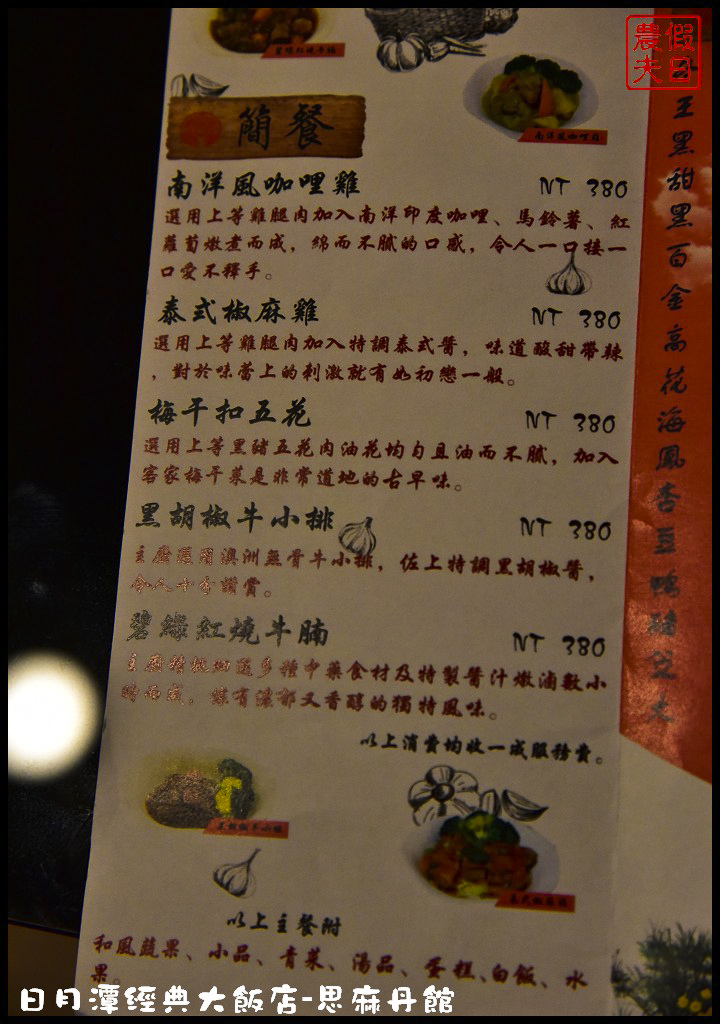 農夫
假日
碧綠紅燒牛腩
南洋風咖哩雞
簡餐
南洋風咖哩雞 NT 380
選用上等雞腿肉加入南洋印度咖哩、馬鈴薯、紅
蘿蔔燉煮而成，綿而不膩的口感，令人一口接一
口愛不釋手。
泰式椒麻雞 NT 380
選用上等雞腿肉加入特調泰式醬，味道酸甜帶辣
，對於味蕾上的刺激就有如初戀一般。
梅干扣五花 NT 380
選用上等黑豬五花肉油花均勻且油而不膩，加入
客家梅干菜是非常道地的古早味。
黑胡椒牛小排 NT 380
主廚選用澳洲無骨牛小排，佐上特調黑胡椒醬，
令人十分讚賞。
碧綠紅燒牛腩 NT 380
主廚精挑細選多種中藥食材及特製醬汁燉滷數小
時而成，擁有濃郁又香醇的獨特風味。
以上消費均收一成服務費。
泰式椒麻雞
以上主餐附
和風蔬果、小品、青菜、湯品、蛋糕、白飯、水
果。
王黑甜黑百金高花海鳳杏豆鴨豬
日月潭經典大飯店-思麻丹館